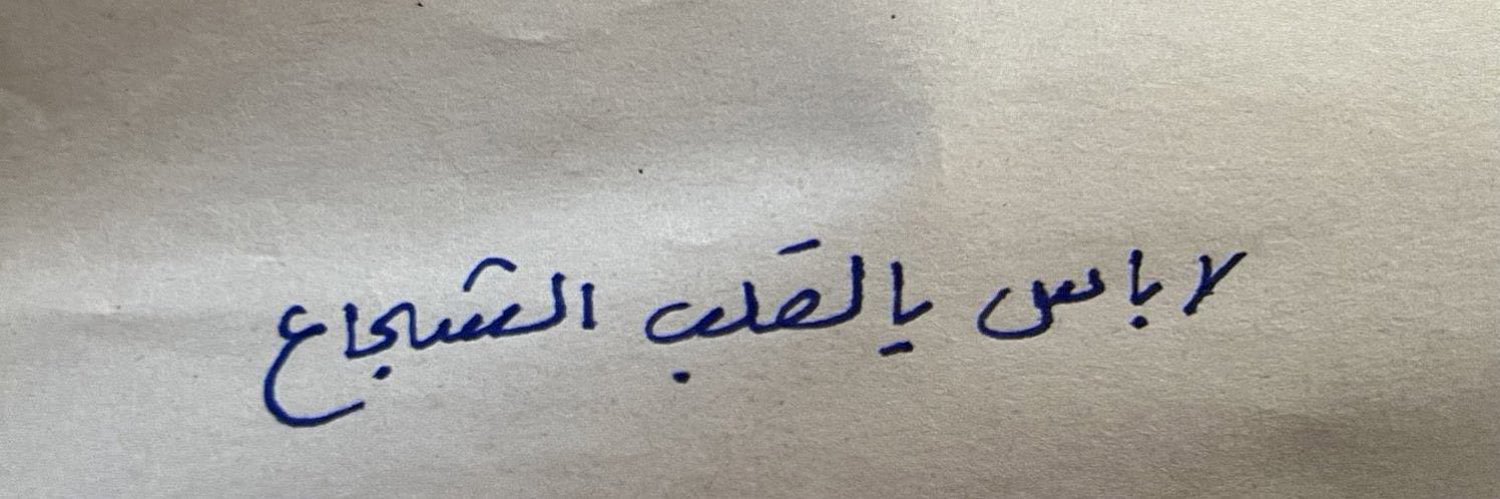 لا باس يا القلب الشجاع